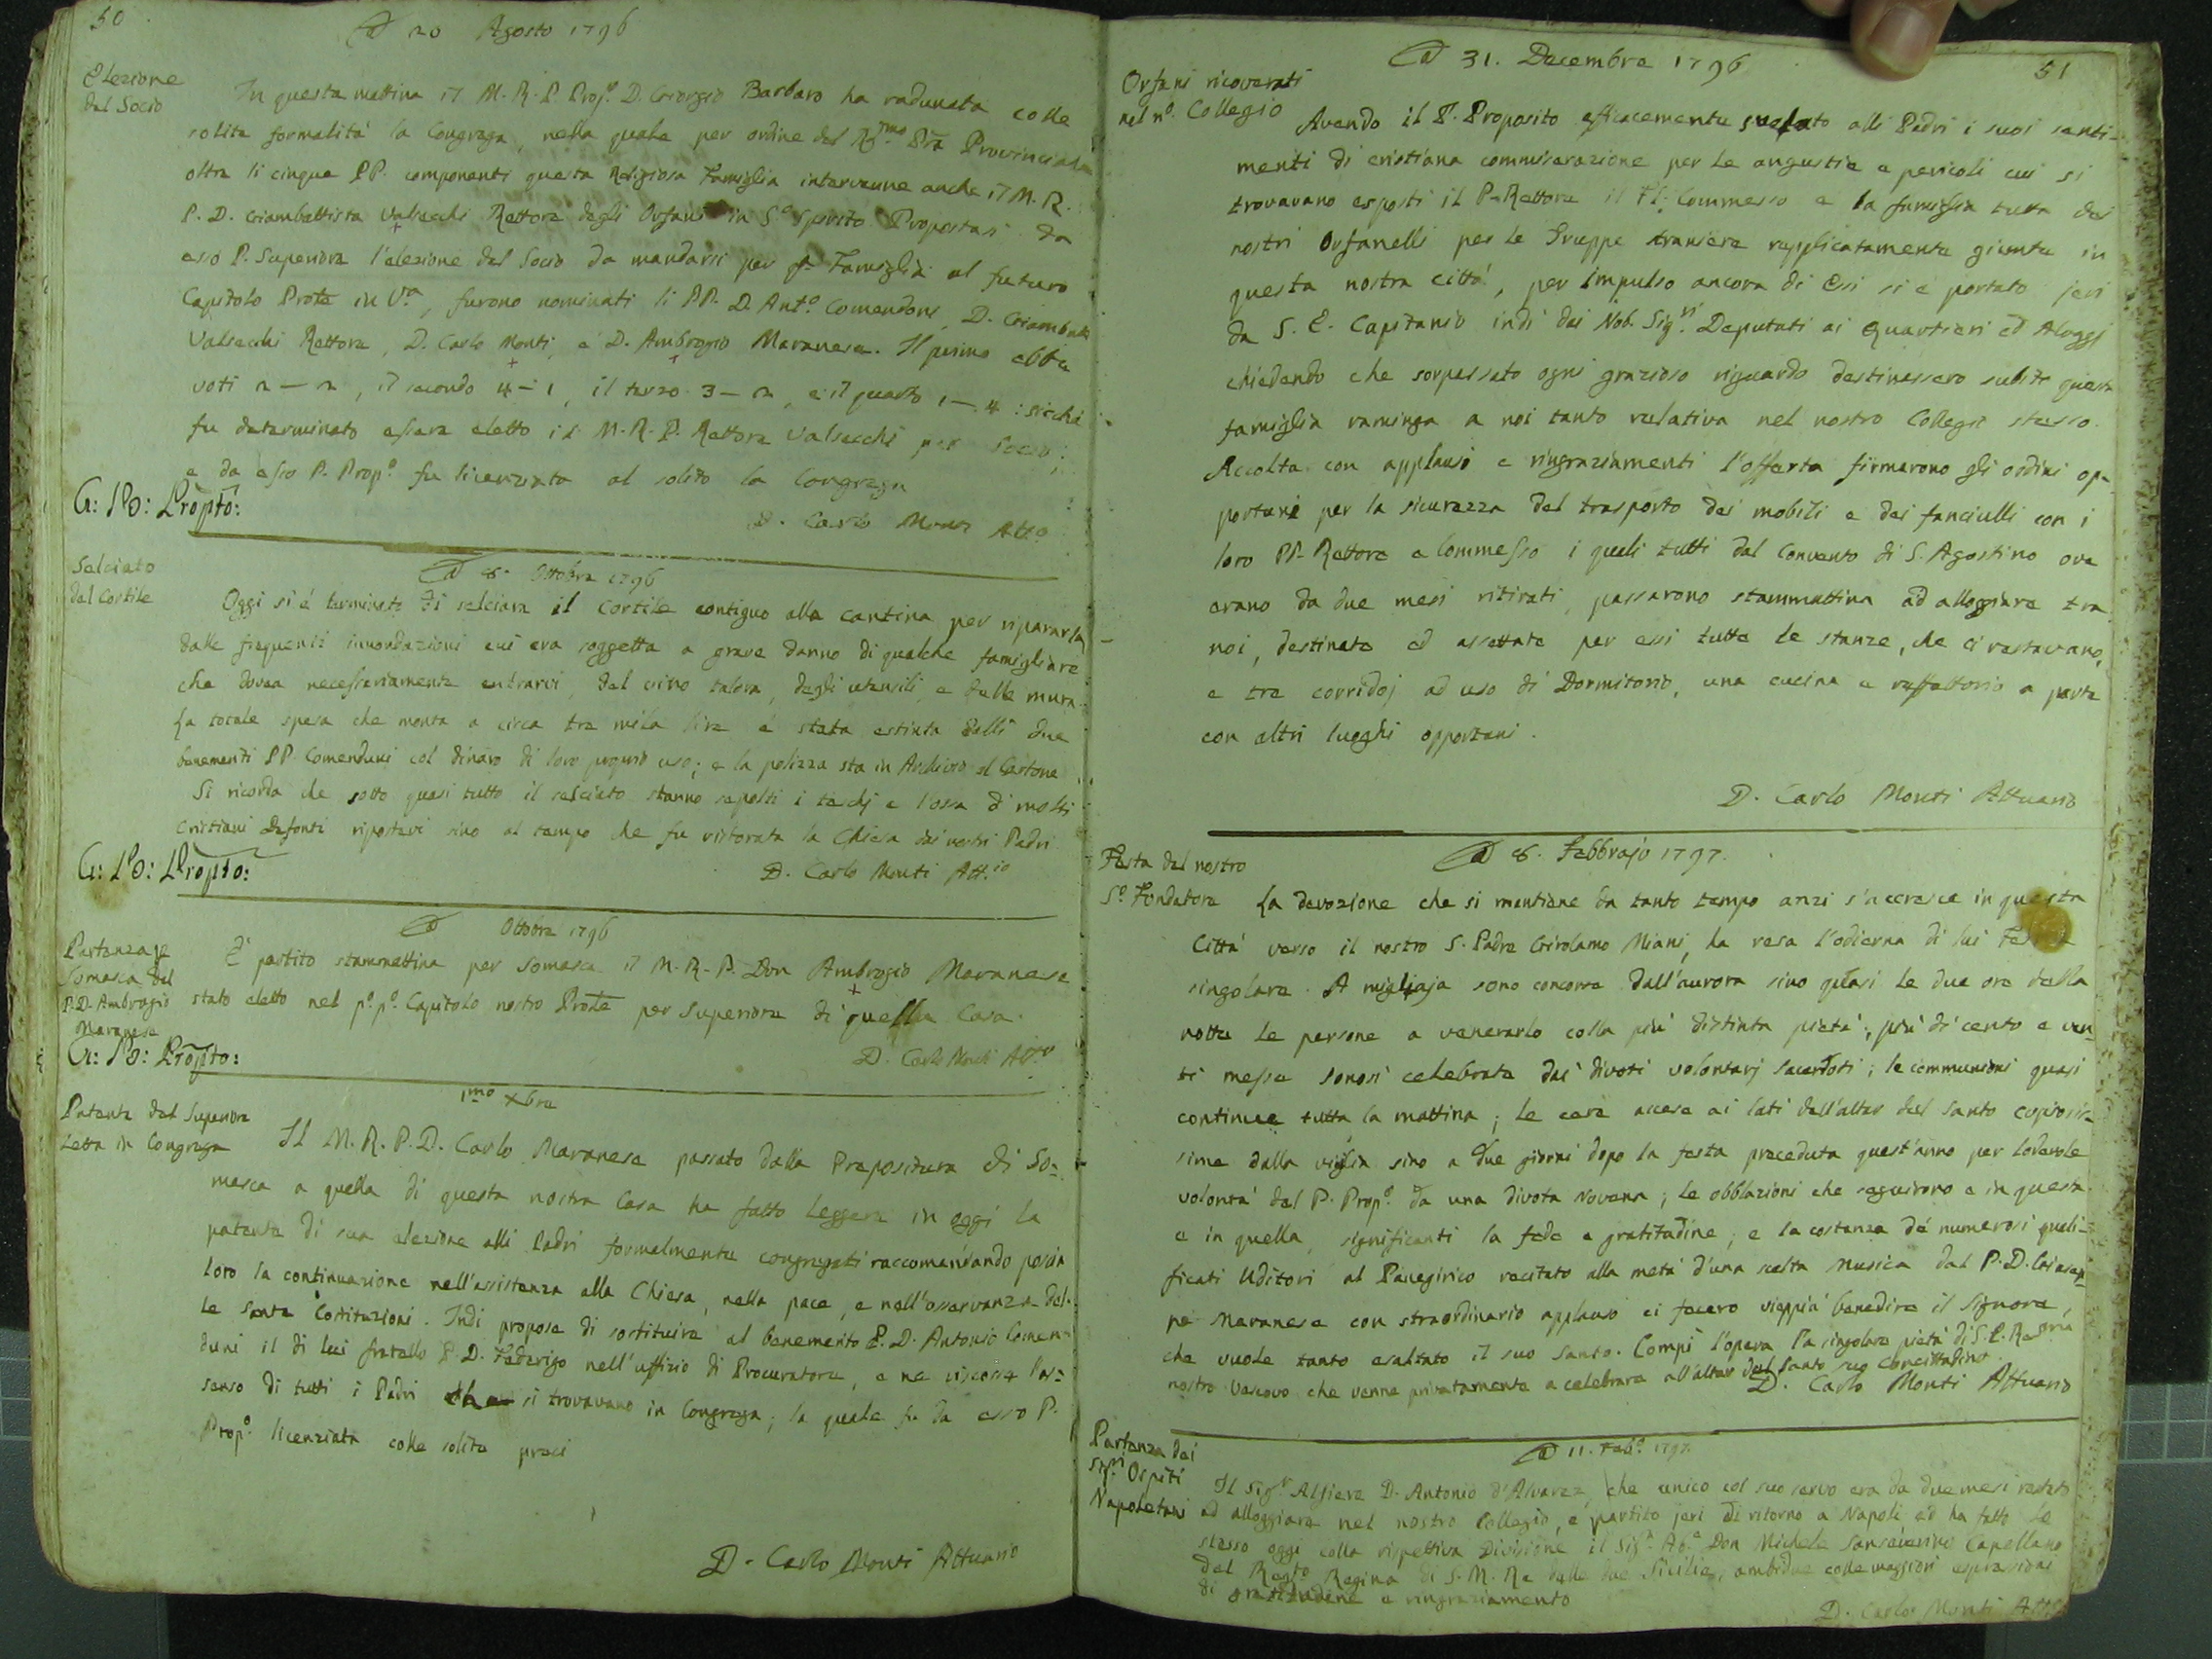 50
A 20 Agosto 1796
Elezione
del Socio
In questa mattina il M. R. P. Prop.º D. Giorgio Barbaro ha radunata colle
solite formalità la Congrega, nella quale per ordine del R.mo Pre Provinciale
oltre li cinque PP. componenti questa Religiosa Famiglia intervenne anche il M. R.
P. D. Giambattista Valsecchi Rettore degli Orfani in S.º Spirito. Propostasi da
esso P. Superiore l'elezione del Socio da mandarsi per Famiglia al futuro
Capitolo Prote in V.a, furono nominati li PP. D. Ant.º Comenduni, D. Giambatta
Valsecchi Rettore, D. Carlo Monti, e D. Ambrogio Maranese. Il primo ebbe
voti 2 – 2, il secondo 4 – 1, il terzo 3 – 2, e il quarto 1 – 4 : sicchè
fu determinato essere eletto il M. R. P. Rettore Valsecchi per Socio;
e da esso P. Prop.º fu licenziata al solito la Congrega
G: B: Propto:
D. Carlo Monti Att.º
Salciato
del Cortile
A 8. Ottobre 1796
Oggi si è terminato di salciare il Cortile contiguo alla cantina per ripararla
dalle frequenti innondazioni cui era soggetta a grave danno di qualche famigliare
che dovea necessariamente entrarvi, del vino talora, degli utensili, e delle mura.
La totale spesa che monta a circa tre mila lire è stata estinta dalli due
benemeriti PP. Comenduni col dinaro di loro proprio uso; e la polizza sta in Archivio al Cartone
Si ricorda che sotto quasi tutto il salciato stanno sepolti i teschj e l'ossa di molti
Cristiani defonti ripostevi sino al tempo che fu ristorata la Chiesa dai nostri Padri
G: B: Propto:
D. Carlo Monti Att.io
A Ottobre 1796
Partenza pe
Somasca del
P. D. Ambrogio
Maranese
È partito stammattina per Somasca il M. R. P. Don Ambrogio Maranese
stato eletto nel p.º p.º Capitolo nostro Prote per Superiore di quella Casa.
G: B: Propto:
D. Carlo Monti Att.º
1.mo Xbre
Patente del Superiore
Letta in Congrega
Il M. R. P. D. Carlo Maranese passato dalla Prepositura di So=
masca a quella di questa nostra Casa ha fatto leggere in oggi la
patente di sua elezione alli Padri formalmente congregati raccomandando poscia
loro la continuazione nell'assistenza alla Chiesa, nella pace, e nell'osservanza del=
le sante Costituzioni. Indi propose di sostituire al benemerito P. D. Antonio Comen=
duni il di lui fratello P. D. Federigo nell'uffizio di Procuratore, e ne riscosse l'as=
senso di tutti i Padri che si trovavano in Congrega; la quale fu da esso P.
Prop.º licenziata colle solite preci
D. Carlo Monti Attuario
51
A 31. Decembre 1796
Orfani ricoverati
nel n.º Collegio
Avendo il P. Proposito efficacemente svelato alli Padri i suoi senti=
menti di cristiana commiserazione per le angustie e pericoli cui si
trovavano esposti il P. Rettore il Fl. Commesso e la famiglia tutta dei
nostri Orfanelli per le Truppe straniere replicatamente giunte in
questa nostra città, per impulso ancora di Essi si è portato jeri
da S. E. Capitanio indi dai Nob. Sig.ri Deputati ai Quartieri ed Aloggi
chiedendo che sorpassato ogni grazioso riguardo destinassero subito questa
famiglia raminga a noi tanto relativa nel nostro Collegio stesso.
Accolta con applausi e ringraziamenti l'offerta firmarono gli ordini op=
portuni per la sicurezza del trasporto dei mobili e dei fanciulli con i
loro PP. Rettore e Commesso i quali tutti dal Convento di S. Agostino ove
erano da due mesi ritirati, passarono stammattina ad alloggiare tra
noi, destinate ed assettate per essi tutte le stanze, che ci restavano,
e tre corridoj ad uso di Dormitorio, una cucina e reffettorio a parte
con altri luoghi opportuni.
D. Carlo Monti Attuario
A 8. Febbrajo 1797.
Festa del nostro
S.º Fondatore
La devozione che si mantiene da tanto tempo anzi s'accresce in questa
Città verso il nostro S. Padre Girolamo Miani, ha resa l'odierna di lui Festa
singolare. A migliaja sono concorse dall'aurora sino quasi le due ore della
notte le persone a venerarlo colla più distinta pietà; più di cento e ven=
ti messe sonosi celebrate dai divoti volontarj sacerdoti; le communioni quasi
continue tutta la mattina; le cere accese ai lati dell'altar del Santo copiosis=
sime dalla vigilia sino a due giorni dopo la festa preceduta quest'anno per lodevole
volontà del P. Prop.º da una divota Novena; le obblazioni che seguirono e in questa
e in quella, significanti la fede e gratitudine; e la costanza de' numerosi quali=
ficati Uditori al Panegirico recitato alla metà d'una scelta Musica dal P. D. Giusep=
pe Maranese con straordinario applauso ci fecero vieppiù benedire il Signore,
che vuole tanto esaltato il suo Santo. Compì l'opera la singolare pietà di S. E. R.ma
nostro Vescovo che venne privatamente a celebrare all'altar del Santo suo Concittadino.
D. Carlo Monti Attuario
A 11. Feb.º 1797.
Partenza dei
Sig.ri Ospiti
Napoletani
Il Sig.r Alfiere D. Antonio d'Alvarez, che unico col suo servo era da due mesi restato
ad alloggiare nel nostro Collegio, è partito jeri di ritorno a Napoli ed ha fatto lo
stesso oggi colla rispettiva Divisione il Sig.r Ab.e Don Michele Sanseverino Capellano
del Regto Regina di S. M. Re delle due Sicilie, ambidue colle maggiori espressioni
di gratitudine e ringraziamento
D. Carlo Monti Att.º